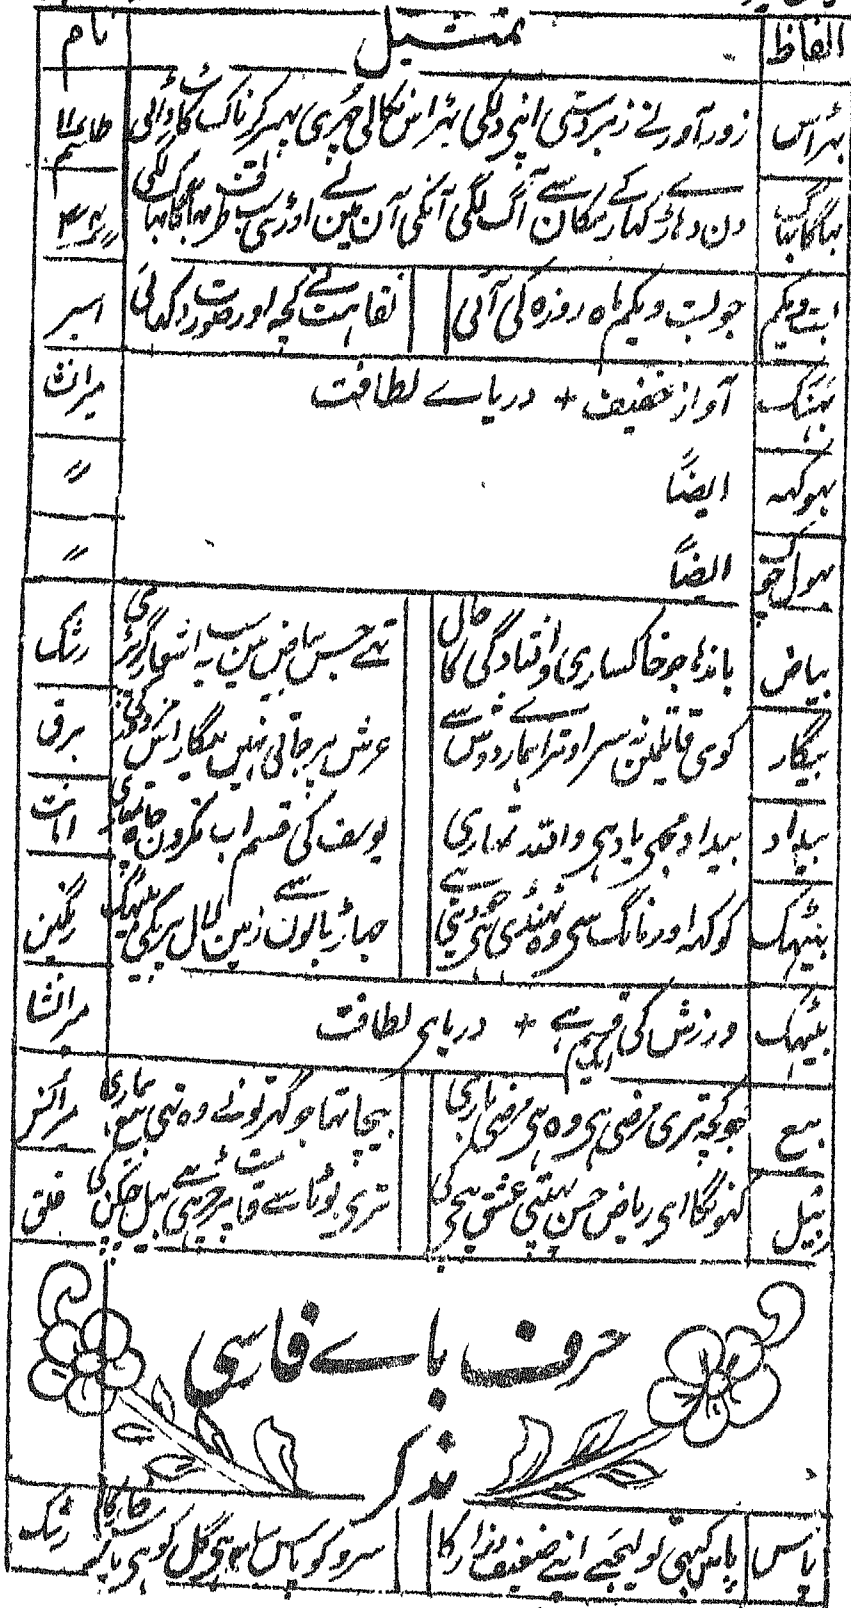 الفاظ تمثیل نام
بہڑاس زور آور نے زبردستی اپنی دلکی بہڑاس نکالی چہری پہیر کر ناک کاٹ ڈالی طلسم
بہاگا بہاگ دن دہاڑے کہار کے مکان سے آگ لگی آنکی آن مین لے اوڑی سب طرف بہاگا بہاگ لگی
بست ویکم جو بست ویکم ماہ روزہ کی آئی نقاہت نے کچہ اور صورت دکہائی اسیر
بہنک آواز خفیف + دریاے لطافت میر انشا
بہوکہہ ایضاً 〃
بہول چوک ایضاً 〃
بیاض باندہا جو خاکساری و افتادگی کا حال تہے جس بیاض مین یہ اشعار گر پڑی رشک
بیگار کوی قاتلمین نہ سر اوترا ہمار دوش سے عرش پر جاتی نہین بیگار اس برق
بیداد بیداد مجہی یاد ہی واللہ تمہاری یوسف کی قسم اب نکرون چاہ تمہاری امانت
بیٹہک کوکہہ اور مانگ سی وہ ٹہنڈی ہی جہاڑ بالون سے زمین لال پریکی بیٹہک رنگین
بیٹہک ورزش کی ایک قسم ہے + دریای لطافت میر انشا
بیع جو کچہ تری مرضی ہی وہ ہی مرضی ہماری بیچا تہا جو گہر تونے وہ تہی بیع ہماری
بیل کہونگا ای ریاض حسن عشق پیچی کی تری بوٹا سے قد پر بیل چکن کی قلق
حرف باے فارسی
مذکر
پاس پاس کبہی تو لیجیے اپنے ضعیف و زار کا سرو کو پاس گل کو ہی پاس خار کا رشک